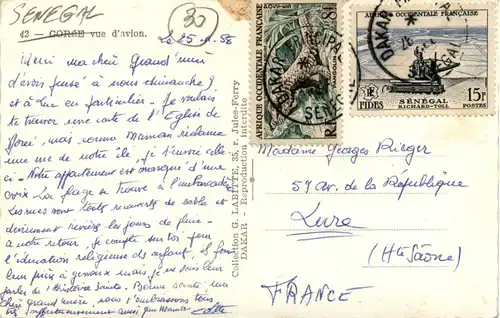 SENEGAL
30
42 - GORÉE vue d'avion.
Le 25-11-58
Merci ma chère Grand'mère
d'avoir pensé à nous dimanche
et à Luc en particulier. Je voulais
te trouver une carte de l'Eglise de
Gorée mais comme Maman réclame
une vue de notre île, je t'envoie celle
ci - Notre appartement est marqué d'une
croix La plage se trouve à l'embarcadère
Les rues sont toutes couvertes de sable et
deviennent rivières les jours de pluie
A notre retour, je compte sur toi pour
l'éducation religieuse des enfants. Ils font
leur prière à genoux mais je ne sais leur
parler de l'Histoire Sainte. Bonne santé, ma
chère grand'mère, nous t'embrassons tous
très affectueusement ainsi que Maman
Collection G. LABITTE, 35, r. Jules-Ferry
DAKAR - Reproduction interdite
AFRIQUE OCCIDENTALE FRANÇAISE
DAKAR
SÉNÉGAL
AFRIQUE OCCIDENTALE FRANÇAISE
DAKAR
FIDES
SÉNÉGAL
RICHARD-TOLL
15F
POSTES
Madame Georges Rieger
57 av. de la République
Lure
(Hte Saône)
FRANCE